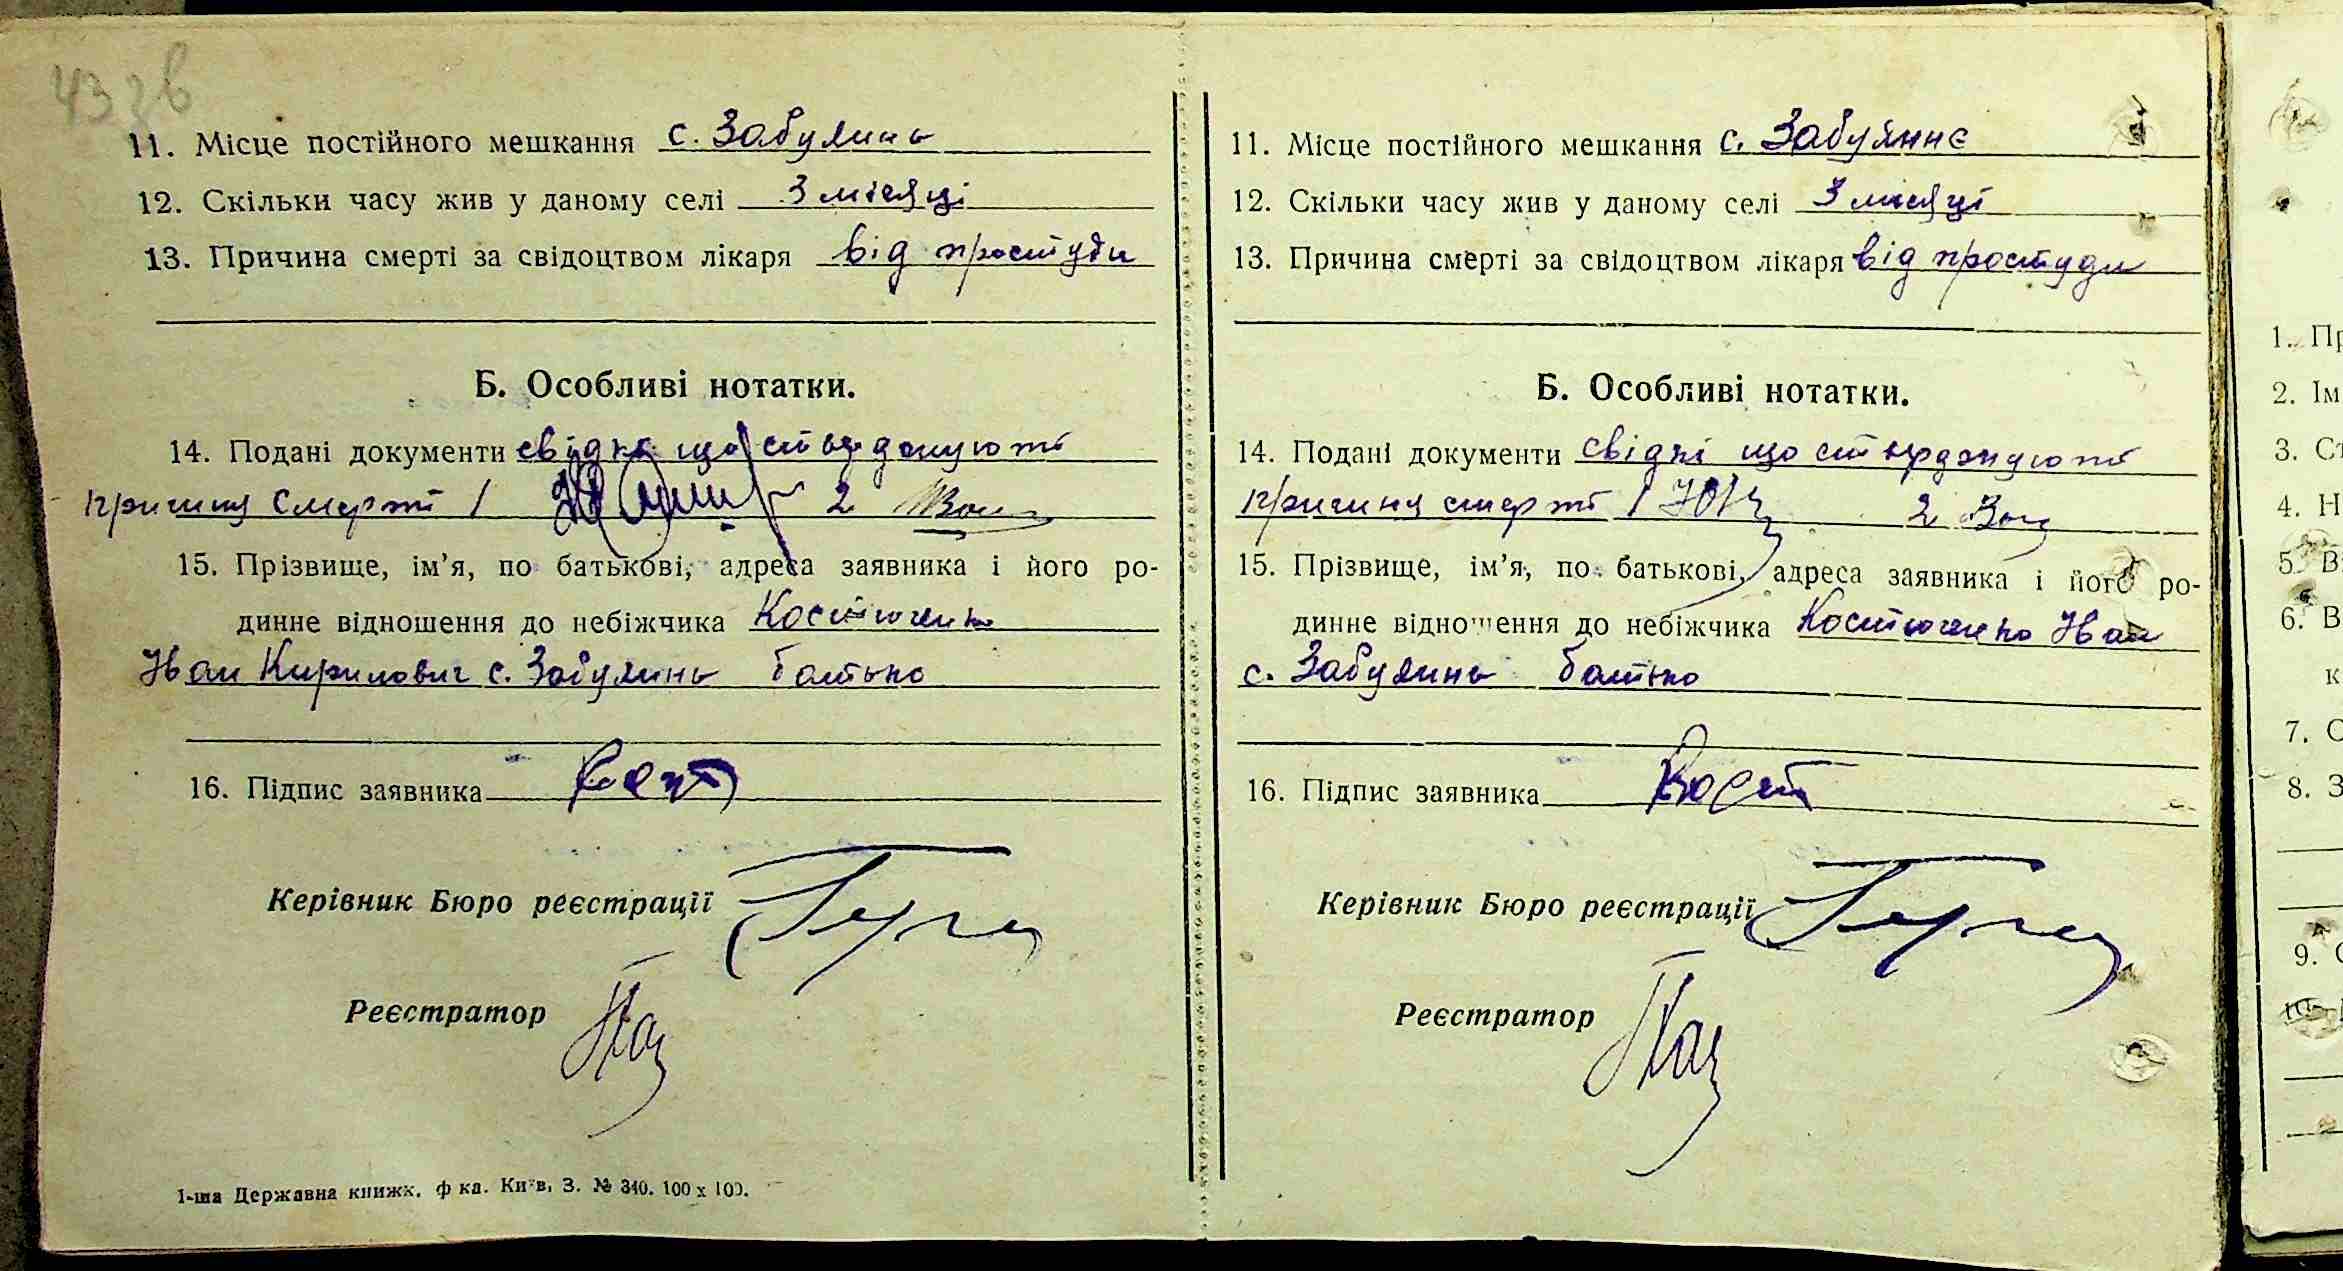 43 зв
11. Місце постійного мешкання с. Забуянь
12. Скільки часу жив у даному селі 3 місяці
13. Причина смерті за свідоцтвом лікаря від простуди
Б. Особливі нотатки.
14. Подані документи свідки що стверджують
причиня смерті 1 2
15. Прізвище, ім'я, по батькові, адреса заявника і його ро-
динне відношення до небіжчика Костюченко
Іван Кирилович с. Забуянь батько
16. Підпис заявника Кост
Керівник Бюро реєстрації
Реєстратор
1-ша Державна книжк. ф-ка. Київ, З. № 340. 100 х 100.
11. Місце постійного мешкання с. Забуяннє
12. Скільки часу жив у даному селі 3 місяці
13. Причина смерті за свідоцтвом лікаря від простуди
Б. Особливі нотатки.
14. Подані документи свідкі що стверджують
причиня смерті 1 2
15. Прізвище, ім'я, по батькові, адреса заявника і його ро-
динне відношення до небіжчика Костюченко Іван
с. Забуянь батько
16. Підпис заявника Кост
Керівник Бюро реєстрації
Реєстратор
1. Пр
2. Ім
3. Ст
4. Н
5. В
6. В
к
7. С
8. З
9. С
10.